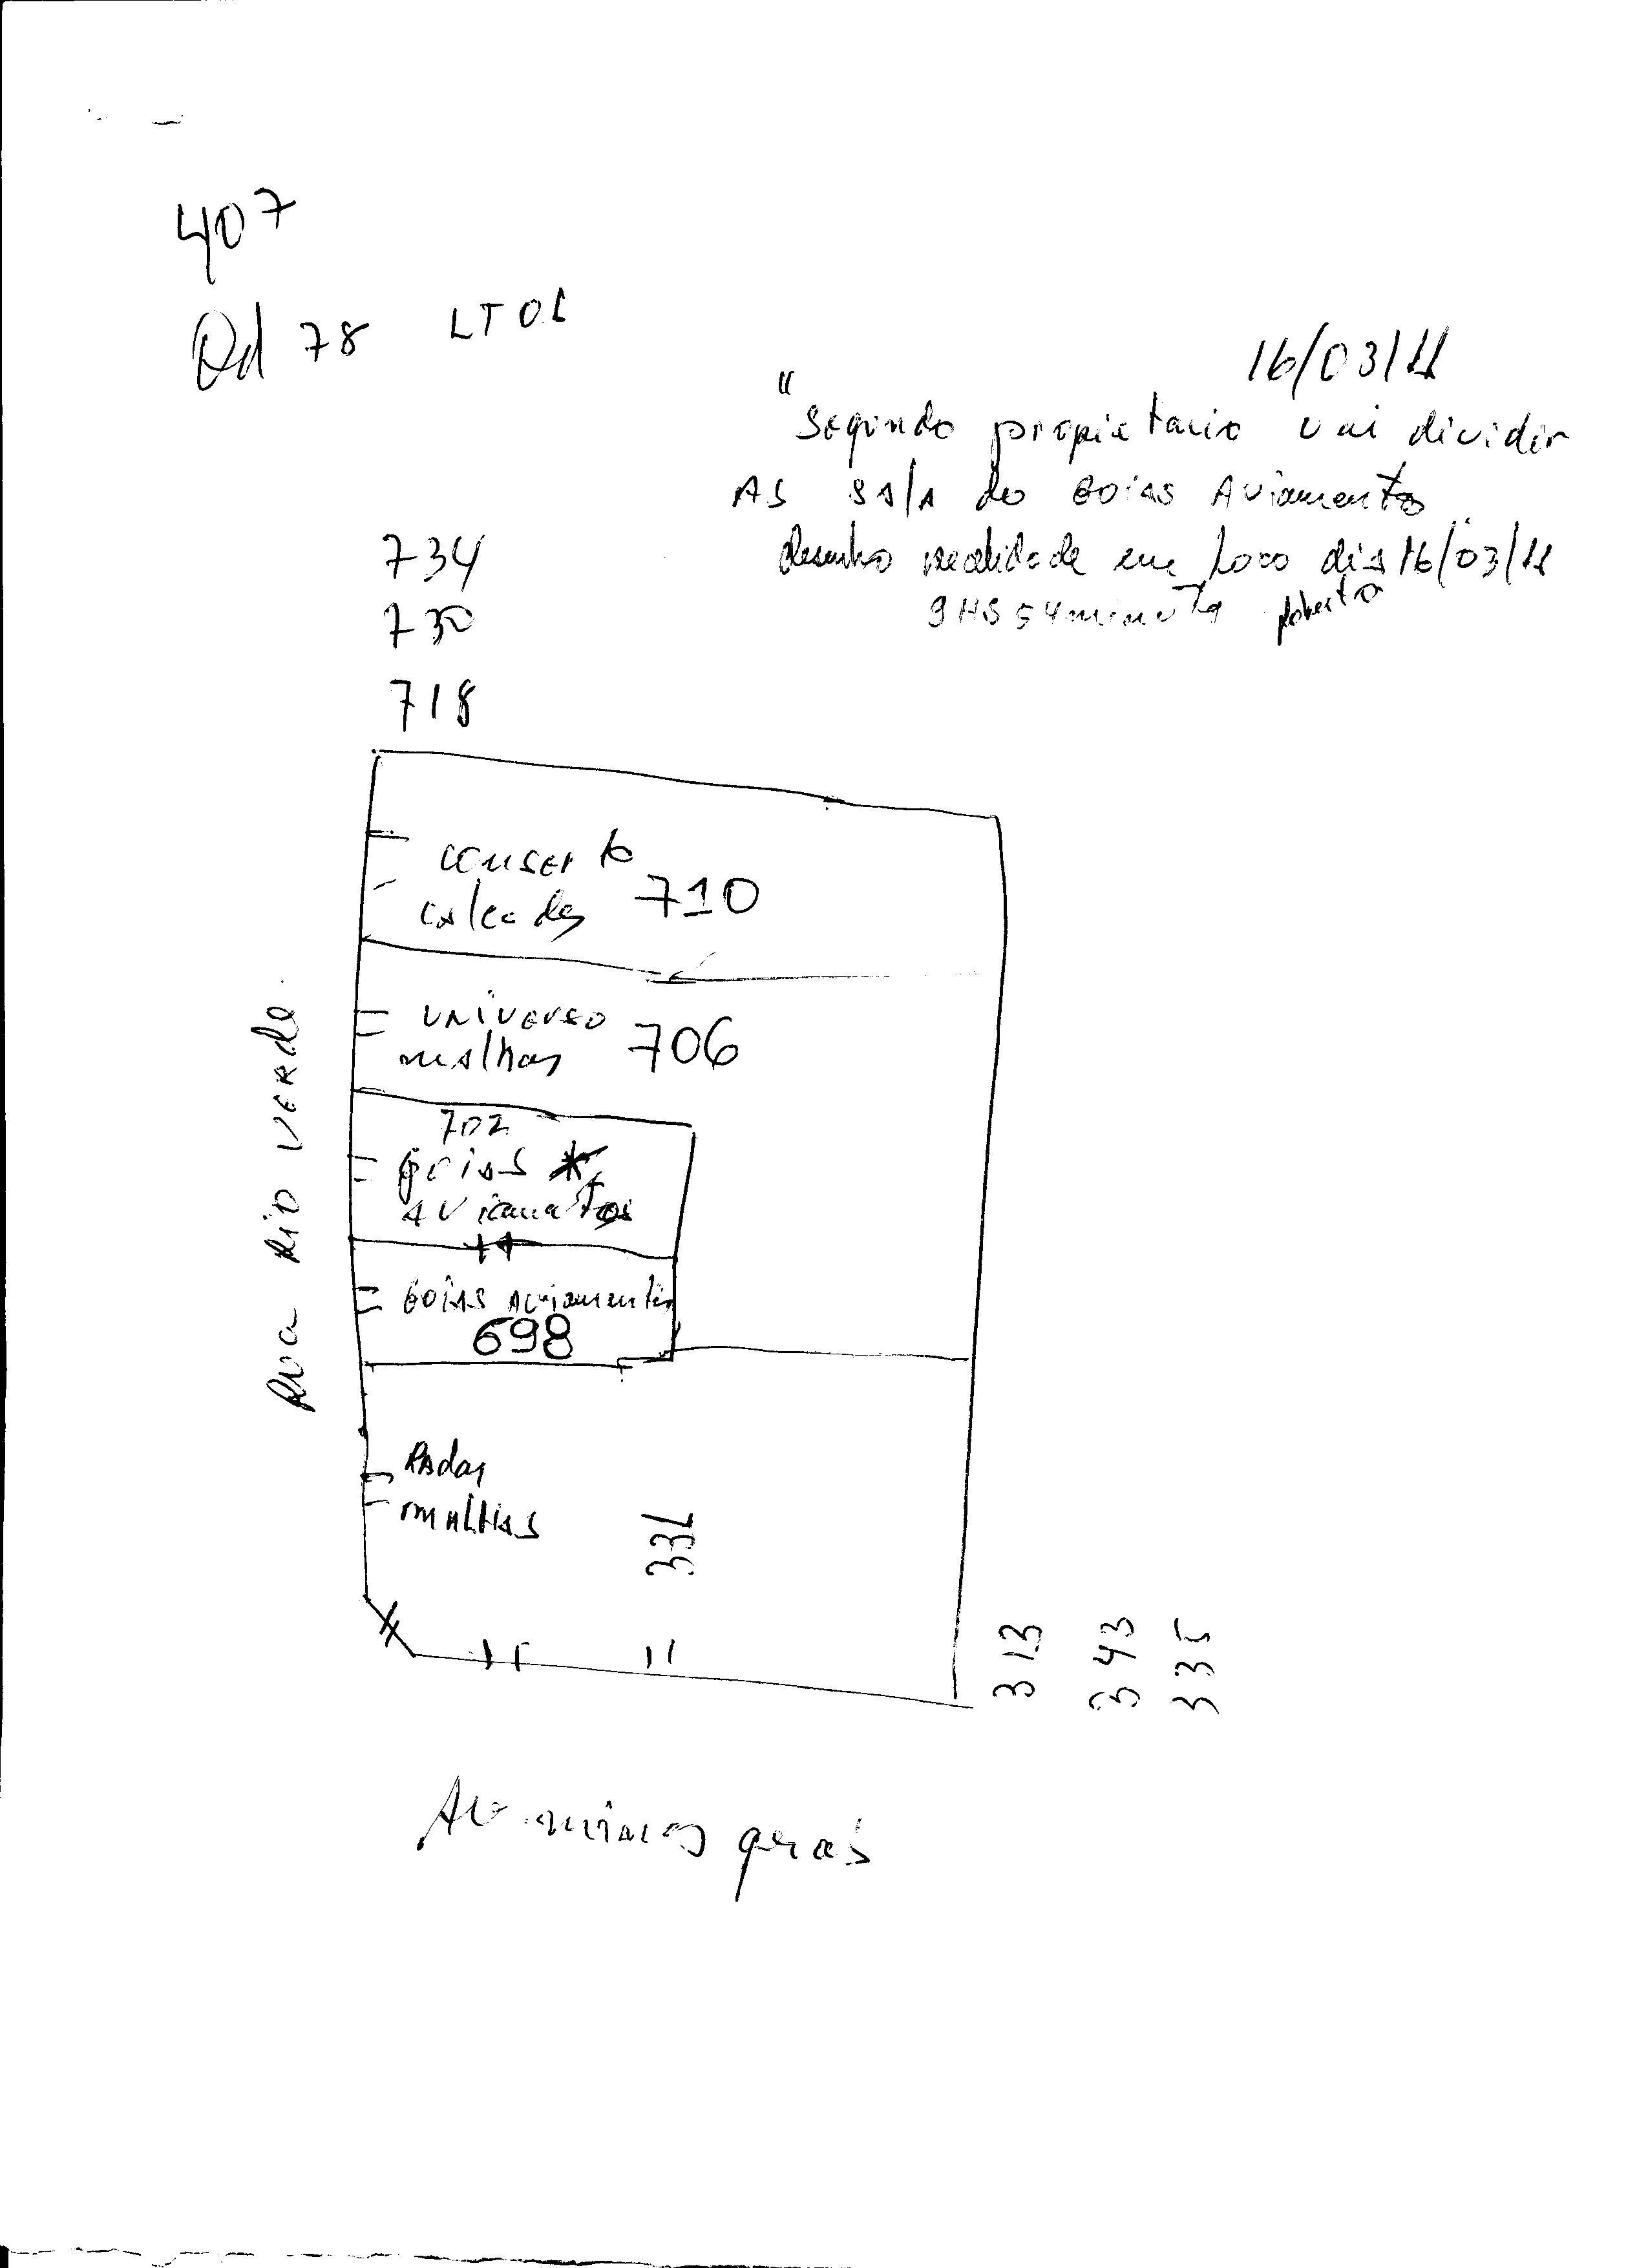 407
Qd 78 LT 01
16/03/11
"Segundo propietario vai dividir
AS SALA do GOIAS AViamento
desenho realidade em Loco dia 16/03/11
9 HS 54 minuto Roberto
734
730
718
conserto
calcados 710
UNIVERSO
malhas 706
702
goias *
AViamentos
GOIAS AViamentos
698
Radar
MALHAS
331
RUA RIO VERDE.
313
343
335
AV. minas gerais